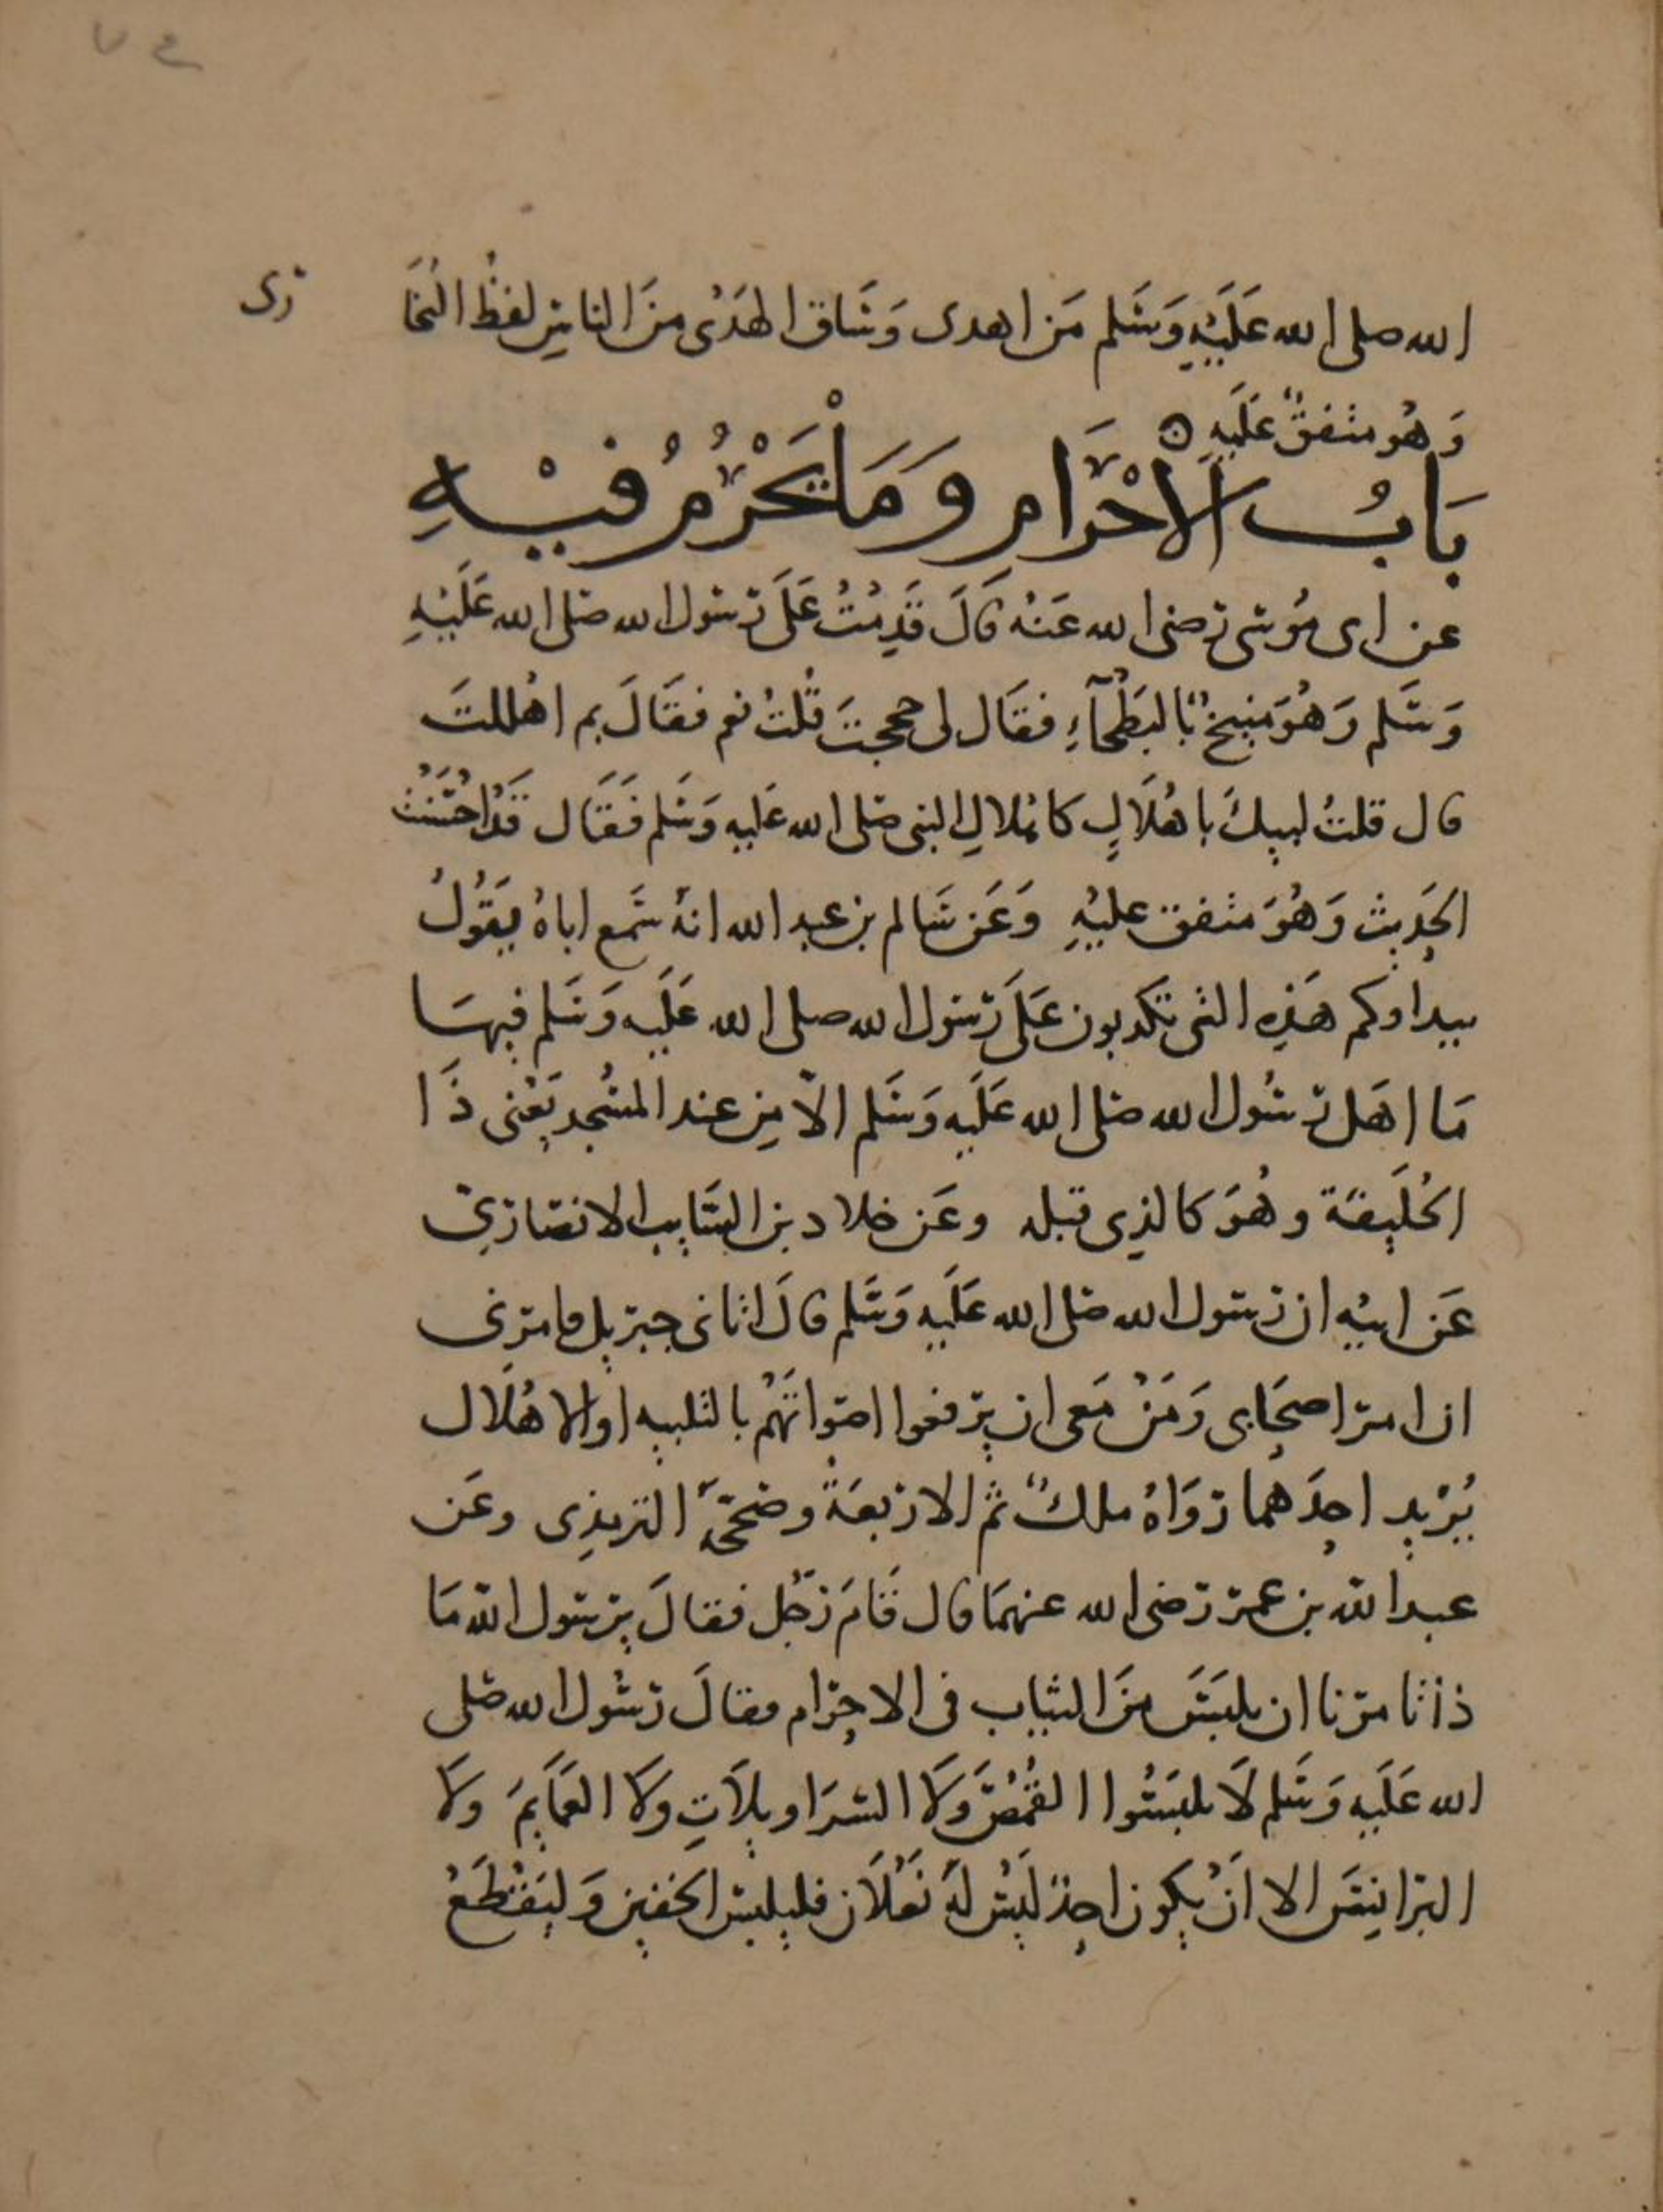 الله صلى الله عَلَيْهِ وَسَلم مَن اهدى وَسَاق الهَدْى مِنَ الناسِ لفظُ البُخَا رى
وَهُو متفقٌ عَلَيهِ
بَابُ الاحْرَامِ وَمَا يَحْرُمُ فيْهِ
عن ابى مُوسَى رَضى الله عَنْهُ قَالَ قَدِمْتُ عَلَى رَسُول الله صَلى الله عَلَيْهِ
وَسَلم وَهُوَ مُنيخٌ بالبَطْحَآءِ فقَال لى حججتَ قُلتُ نعم فقَالَ بم اهْللتَ
قال قلتُ لبيكَ باهْلَالٍ كاهْلالِ النبى صَلى الله عَليهِ وَسَلم فَقَال قَدْ احْسَنْتَ
الحَديث وَهُوَ متفق عليْهِ وَعَن سَالم بن عبد الله انهُ سَمع اباهُ يَقُولُ
بيداوكم هَذِه التى تكذبون عَلَى رَسُول الله صلى الله عَلَيه وَسَلم فيهَا
مَا اهَل رَسُول الله صَلى الله عَلَيه وَسَلم الّا مِن عند المسْجد يَعْنى ذَا
الحُلَيفَة وهُوَ كالذِى قبله وعَن خلاد بن السَايب الانصَارِيّ
عَن ابيْهِ ان رَسُول الله صَلى الله عَلَيه وَسَلم قالَ اتانى جبرَيل فامرَنى
ان امر اصحَابى وَمَنْ مَعى ان يرَفعوا اصواتَهُمْ بالتلبيه او الاهْلال
يُرْيد احِدَهما رَوَاهُ ملكٌ ثم الارْبعَةُ وصَححَّهُ الترمِذِى وعَن
عبد الله بن عمرَ رَضى الله عنهمَا قال قَامَ رَجُل فقالَ يرَسُول الله مَا
ذا تامرَنا ان نلبَسَ مِنَ الثياب فى الاحِرَام فقالَ رَسُول الله صَلى
الله عَلَيه وَسَلم لَا تلبَسُوا القُمُصَ وَلَا السَرَاويلَاتِ وَلَا العَمَايِمَ وَلَا
البرَانِسَ الا اَنْ يكون احِدٌ ليْسَ لَهُ نَعْلَان فليلبس الخفين وَليَقْطَعْ